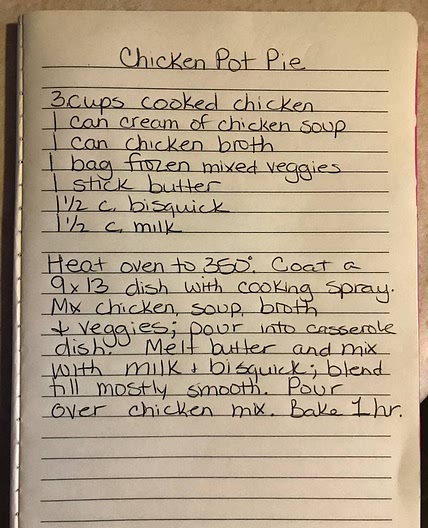 Chicken Pot Pie
3 cups cooked chicken
1 can cream of chicken soup
1 can chicken broth
1 bag frozen mixed veggies
1 stick butter
1 1/2 c. bisquick
1 1/2 c. milk
Heat oven to 350°. Coat a
9x13 dish with cooking spray.
Mix chicken, soup, broth
+ veggies; pour into casserole
dish. Melt butter and mix
with milk + bisquick; blend
till mostly smooth. Pour
over chicken mix. Bake 1 hr.